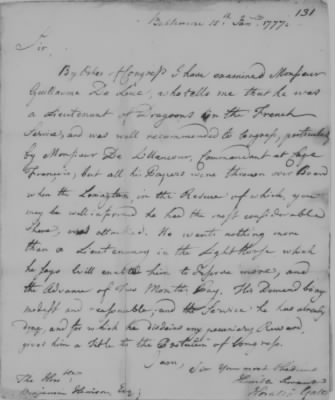 131
Baltimore 18th Jany 1777.
Sir
By Order of Congress I have examined Monsieur
Guillaume De Luce, who tells me that he was
a Lieutenant of Dragoons in the French
Service, and was well recommended to Congress, particularly
by Monsieur De Lillancour, Commandant at Cape
François; but all his Papers were thrown over Board
when the Lexington, in the Rescue of which, you
may be well informed he had the most considerable
Share, was attacked. He wants nothing more
than a Lieutenancy in the Light Horse which
he says will enable him to expose more, and
the Advance of Two Months Pay. His Demand being
modest and reasonable; and the Service he has already
done, and for which he disdains any pecuniary Reward,
gives him a Title to the Protection of Congress.
I am, Sir Your most Obedient
Humble Servant
The Honble
Benjamin Harrison Esq;
Horatio Gates